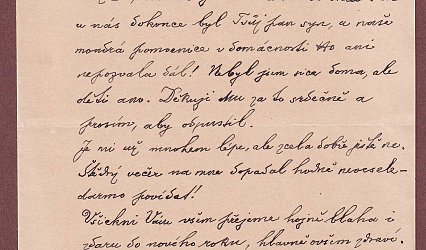 u nás dokonce byl Tvůj pan syn, a naše
moudrá pomocnice v domácnosti Ho ani
nepozvala dál! Nebyl jsem sice doma, ale
děti ano. Děkuji Mu za to srdečně a
prosím, aby odpustil.
Je mi už mnohem lépe, ale zcela dobře ještě ne.
Štědrý večer na mne dopadal hodně nevesele-
darmo povídat!
Všichni Vám všem přejeme hojně blaha i
zdaru do nového roku, hlavně ovšem zdraví.